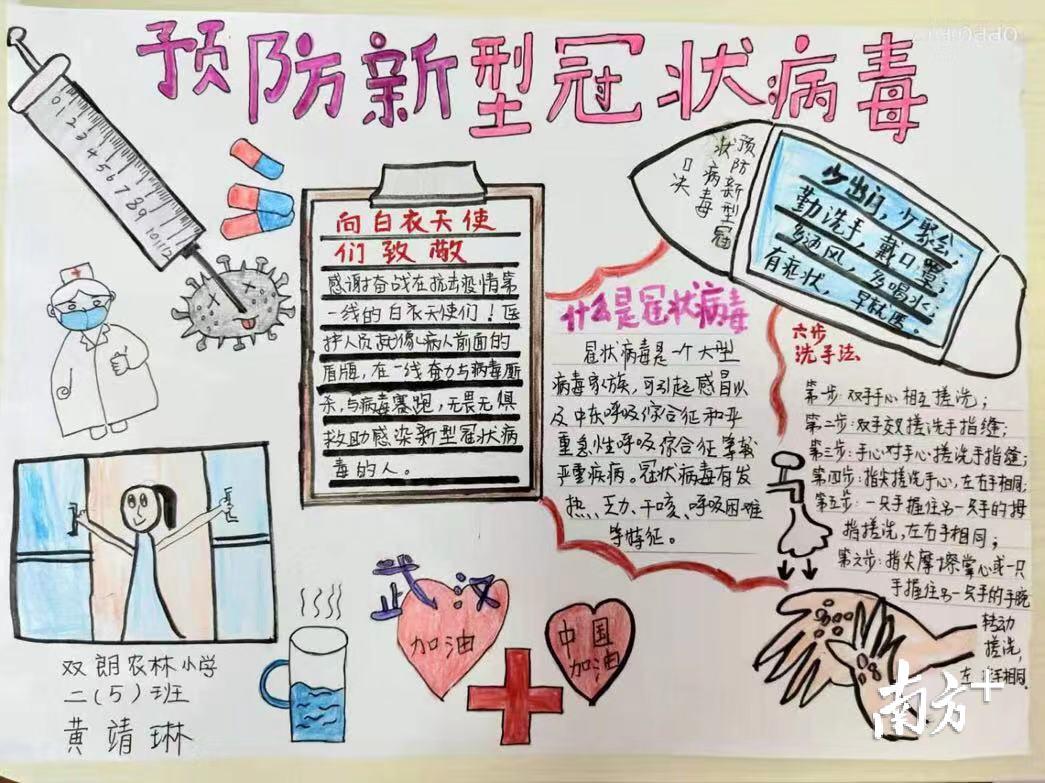 预防新型冠状病毒
0 1 2 3 4 5 6 7 8 9 10 11 12
向白衣天使
们致敬
感谢奋战在抗击疫情第
一线的白衣天使们！医
护人员就像病人前面的
盾牌，在一线奋力与病毒厮
杀，与病毒赛跑，无畏无惧
救助感染新型冠状病
毒的人。
预防新型冠
状病毒
口决
少出门，少聚会；
勤洗手，戴口罩；
多边风，多喝水；
有症状，早就医。
什么是冠状病毒
冠状病毒是一个大型
病毒家族，可引起感冒以
及中东呼吸综合征和严
重急性呼吸综合征等较
严重疾病。冠状病毒有发
热、乏力、干咳、呼吸困难
等特征。
六步
洗手法
第一步：双手手心相互搓洗；
第二步：双手交搓洗手指缝；
第三步：手心对手心搓洗手指缝；
第四步：指尖搓洗手心，左右手相同；
第五步：一只手握住另一只手的拇
指搓洗，左右手相同；
第六步：指尖摩擦掌心或一只
手握住另一只手的手腕
转动
搓洗，
左 手相同。
武汉
加油
中国
加油
双朗农林小学
二（5）班
黄靖琳
南方+